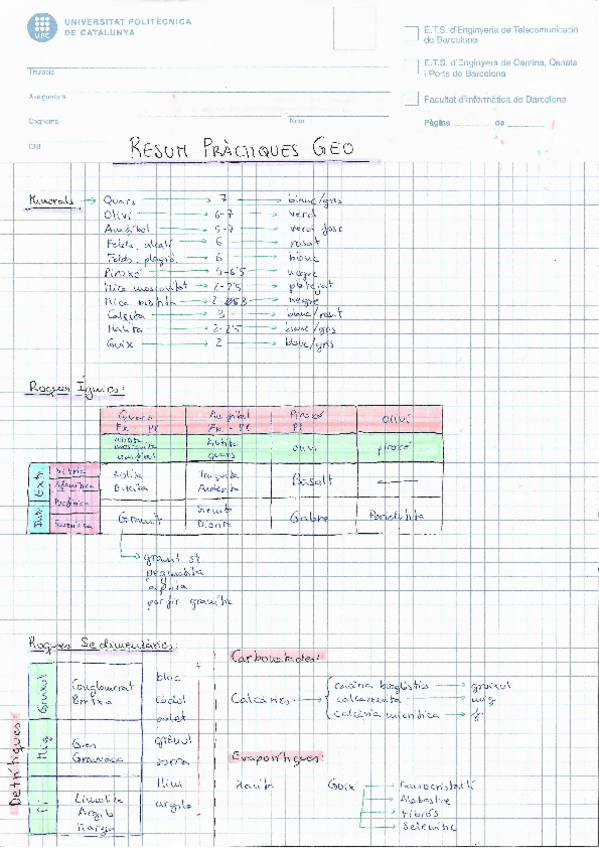 UNIVERSITAT POLITÈCNICA
DE CATALUNYA
UPC
E.T.S. d'Enginyeria de Telecomunicació
de Barcelona
E.T.S. d'Enginyers de Camins, Canals
i Ports de Barcelona
Facultat d'Informàtica de Barcelona
Titulació
Assignatura
Cognoms
Nom
Pàgina de
DNI
RESUM PRÀCTIQUES GEO
Minerals
Quars 7 blanc/gris
Oliví 6-7 verd
Amfíbol 5-7 verd fosc
Felds. alcalí 6 rosat
Felds. plagio. 6 blanc
Piroxé 5-6'5 negre
Mica moscovita 2-2'5 platejat
Mica biotita negre
Calcita 3 blanc/rosat
Halita 2-2'5 blanc/gris
Guix 2 blanc/gris
Roques Ígnies:
Quars Amfíbol Piroxé Oliví
Fk Pl Fk - Pl Pl
biotita moscovita amfíbol
biotita quars
oliví
piroxé
Extr.
Vítria
Afanítica
Riolita Traquita Basalt
Dacita Andesita
Intr.
Porfírica
Fanerítica
Granit Sienita Gabre Peridotita
Diorita
granit st
pegmatita
aplita
pòrfir granític
Roques Sedimentàries:
Detrítiques:
Gruixut
Conglomerat
Bretxa
bloc
còdol
palet
Mig
Gres
Grauvaca
grànul
sorra
Fi
Limolita
Argila
Marga
llim
argila
Carbonatades:
Calcàries
calcària bioclàstica gruixut
calcarenita mig
calcària micrítica fi
Evaporítiques:
Halita
Guix
Alabastre
Fibrós
Selenític